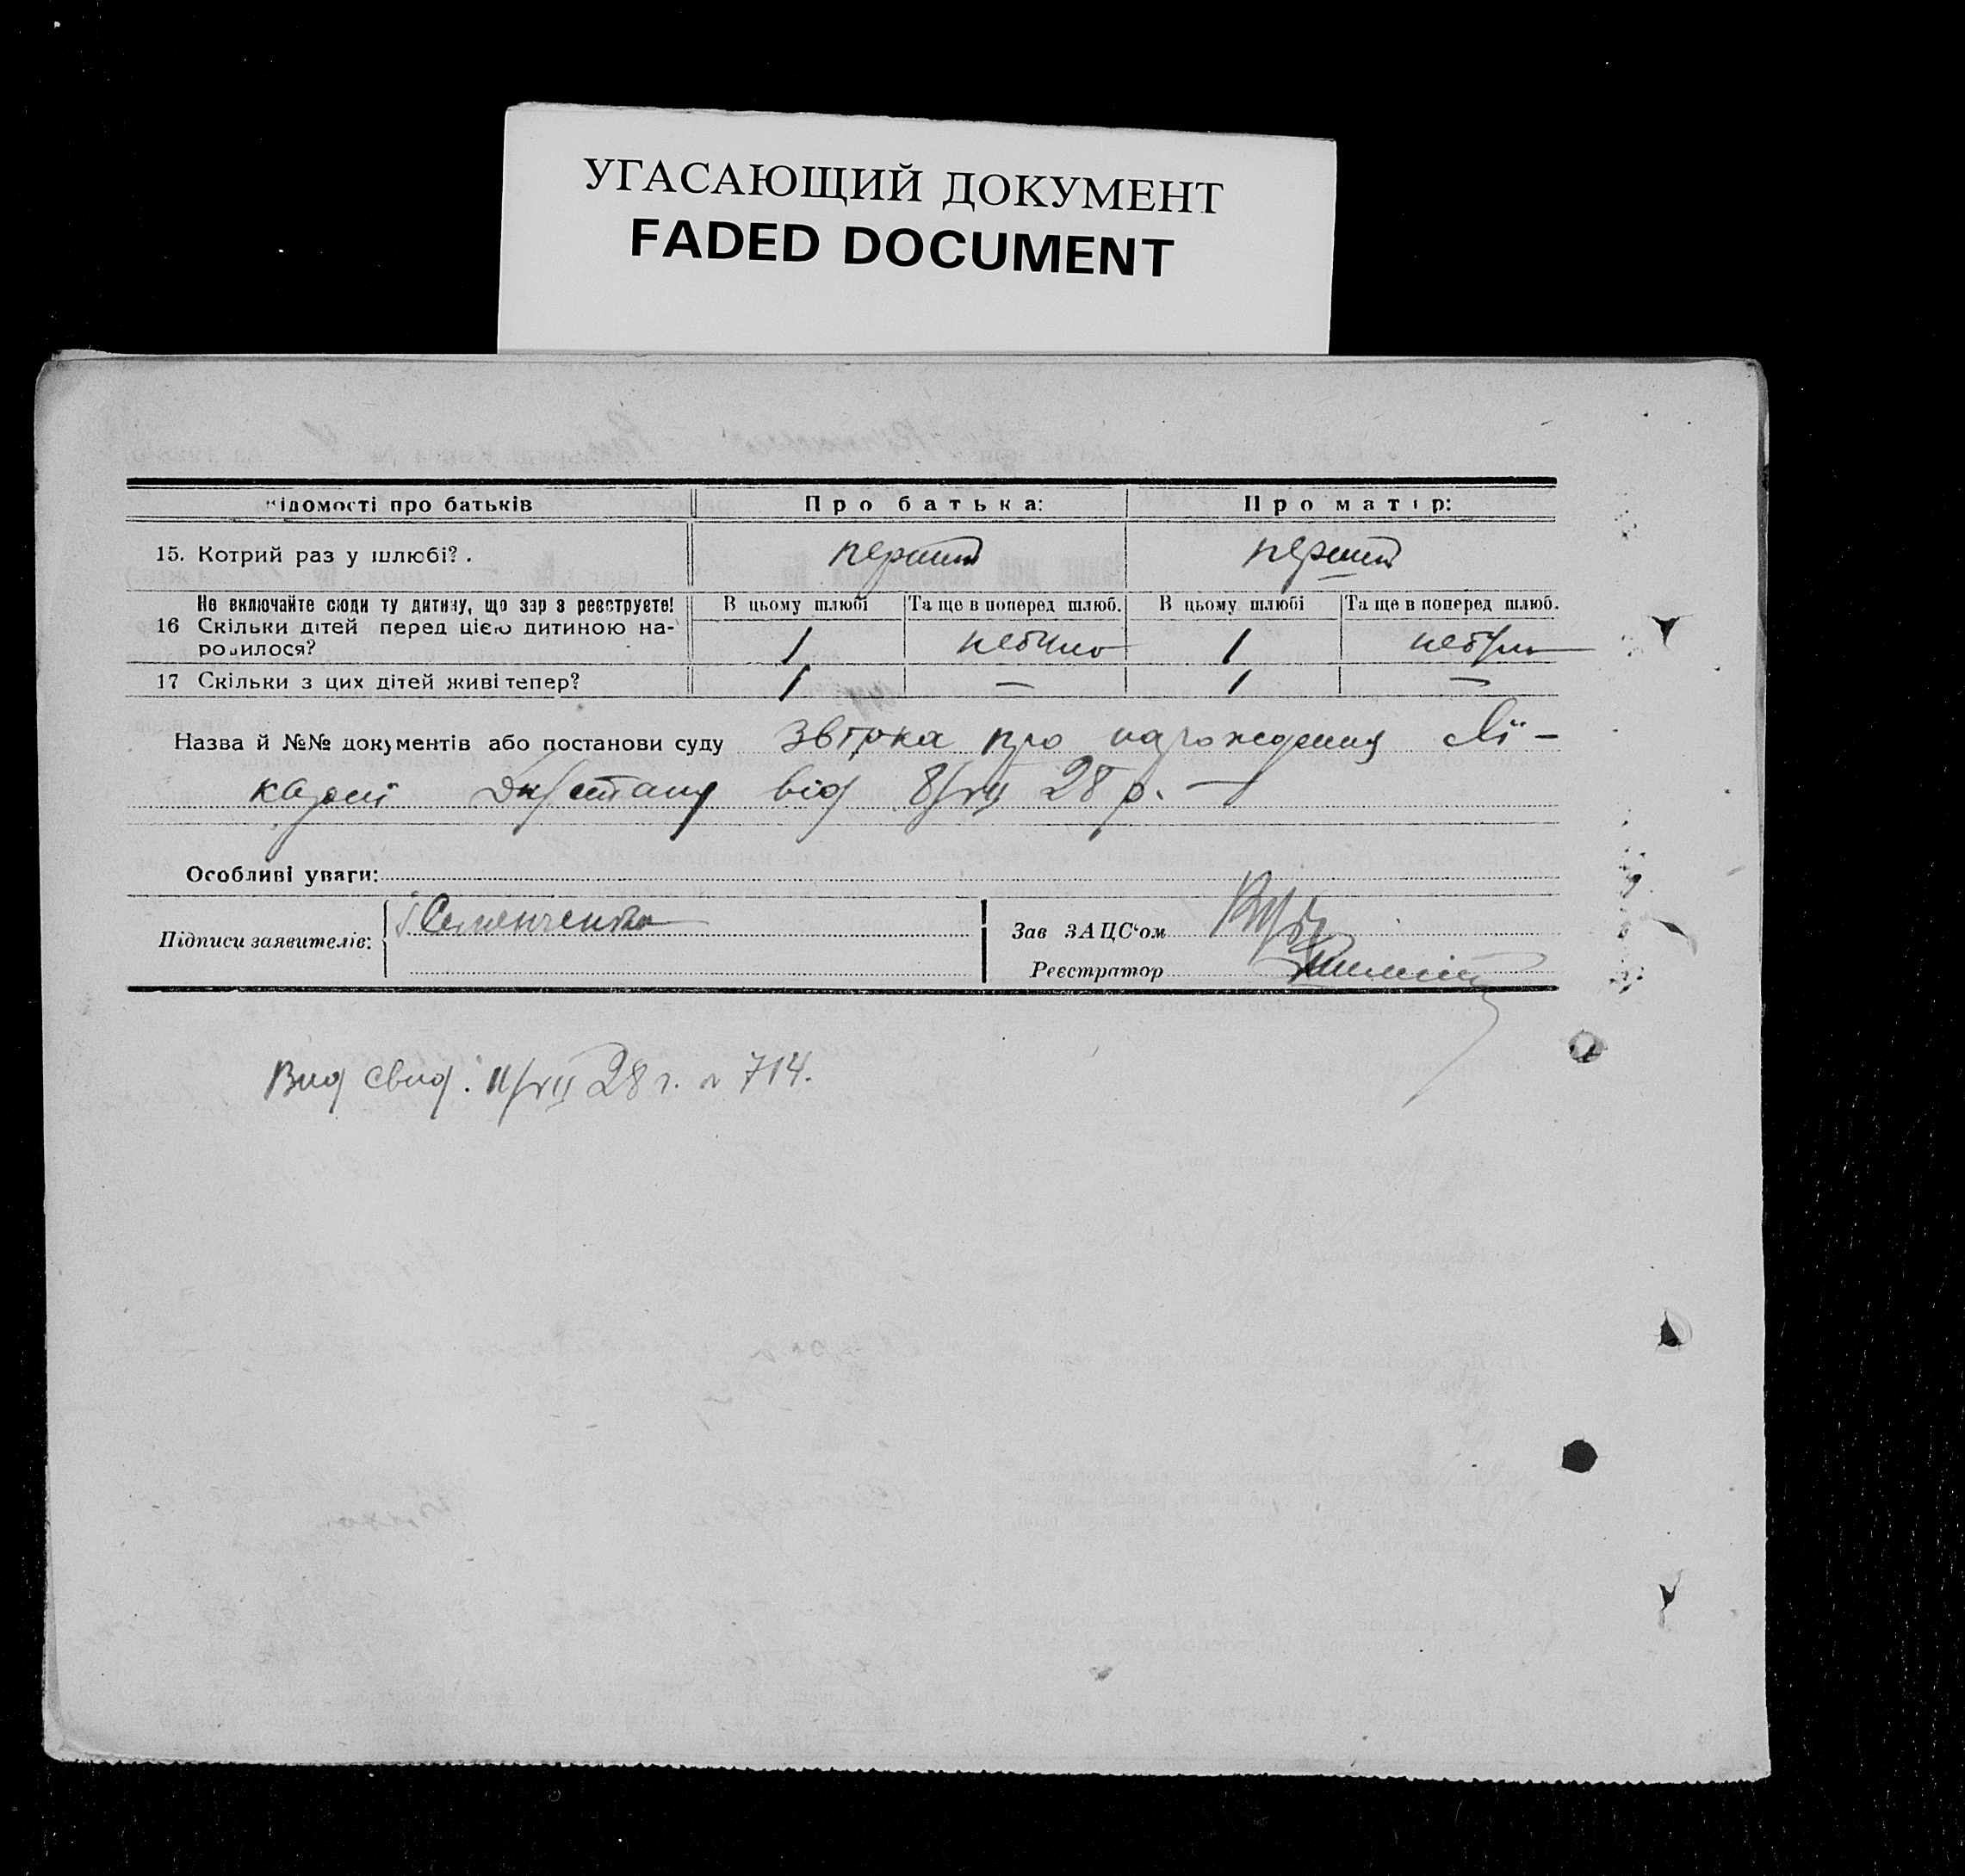 УГАСАЮЩИЙ ДОКУМЕНТ
FADED DOCUMENT
ідомості про батьків Про батька: Про матір:
15. Котрий раз у шлюбі?. перший перший
Не включайте сюди ту дитину, що зар з реєструєте! В цьому шлюбі Та ще в поперед шлюб. В цьому шлюбі Та ще в поперед шлюб.
16 Скільки дітей перед цією дитиною на-
родилося? 1 небуло 1 небуло
17 Скільки з цих дітей живі тепер? 1 — 1 —
Назва й №№ документів або постанови суду звірка про народження Лі-
від 8/VII 28 р. —
Особливі уваги:
Підписи заявителів: Семенченко
Зав ЗАЦС'ом
Реєстратор
Вид свид. 11/VII 28 г. № 714.